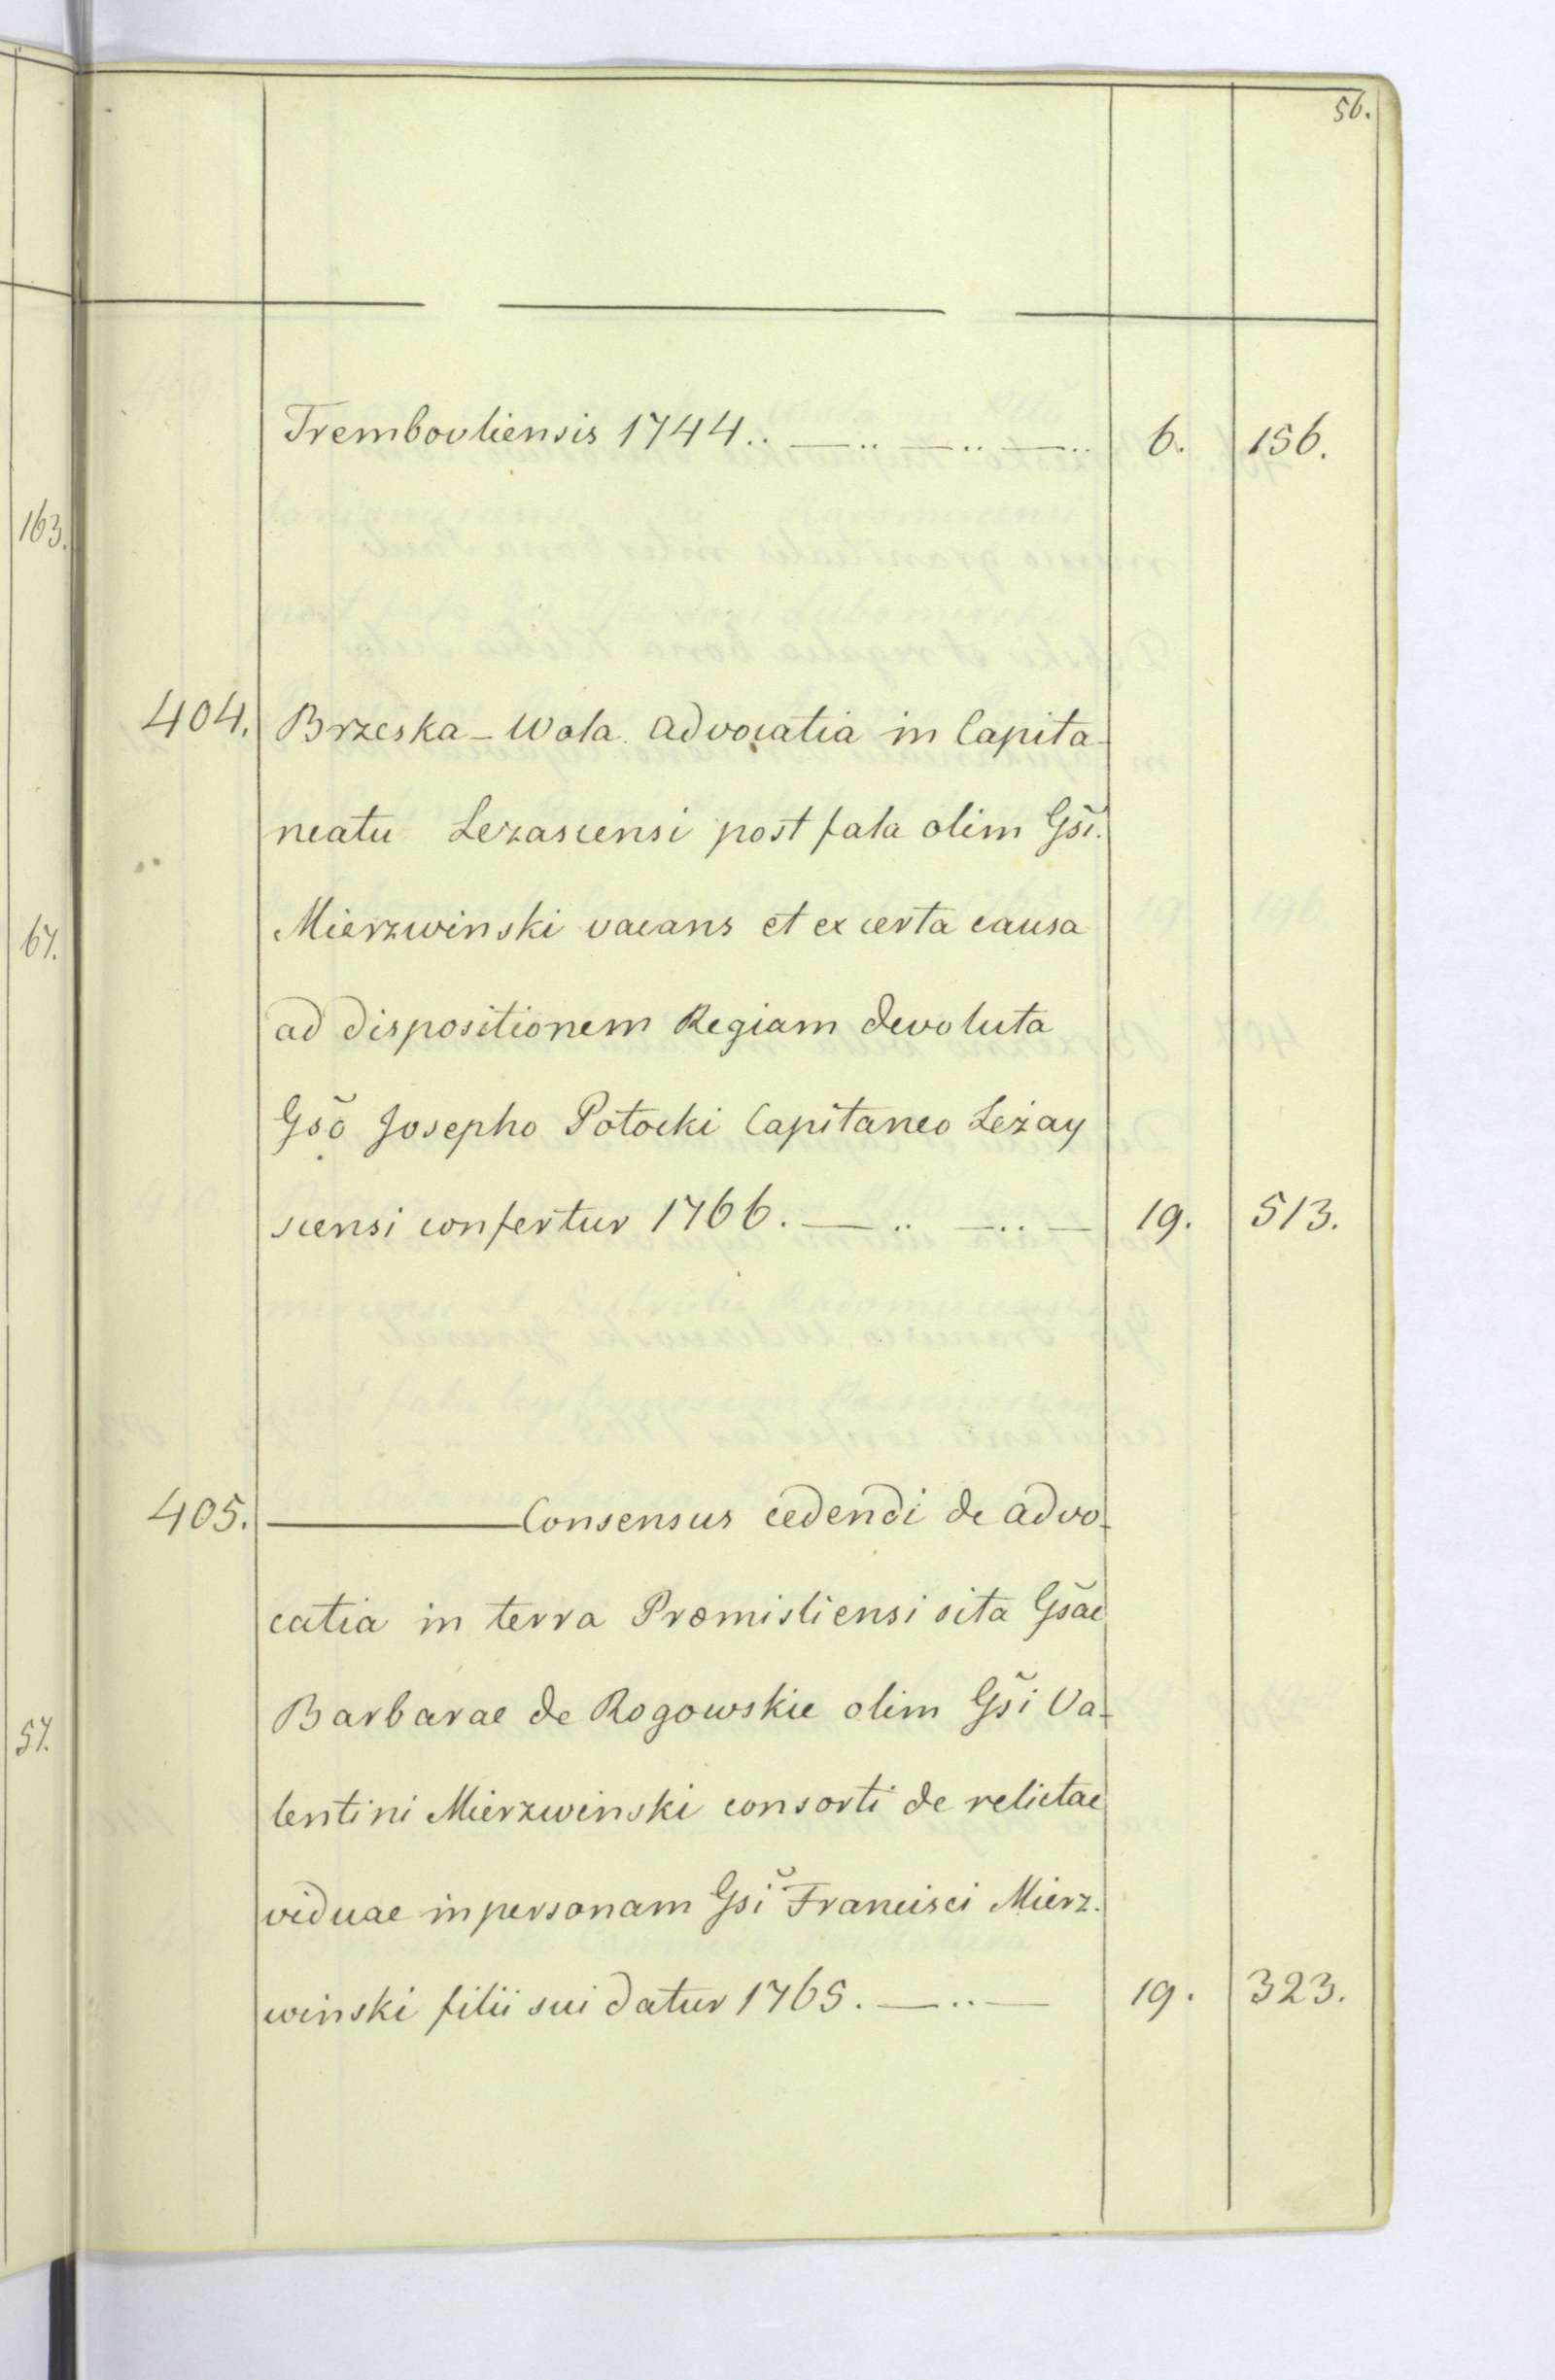 56.
Trembovliensis 1744.. —..—..—.. 6. 156.
163.
404. Brzeska-Wola advocatia in Capita-
neatu Lezascensi post fata olim Gsĭ.
Mierzwinski vacans et ex certa causa
67.
ad dispositionem Regiam devoluta
Gsŏ Josepho Potocki Capitaneo Leżay
scensi confertur 1766. —..—..— 19. 513.
405. ——— Consensus cedendi de advo-
catia in terra Praemisliensi sita Gsăe
Barbarae de Rogowskie olim Gsĭ Va-
57.
lentini Mierzwinski consorti de relictae
viduae in personam Gsĭ Francisci Mierz.
winski filii sui datur 1765. —..— 19. 323.